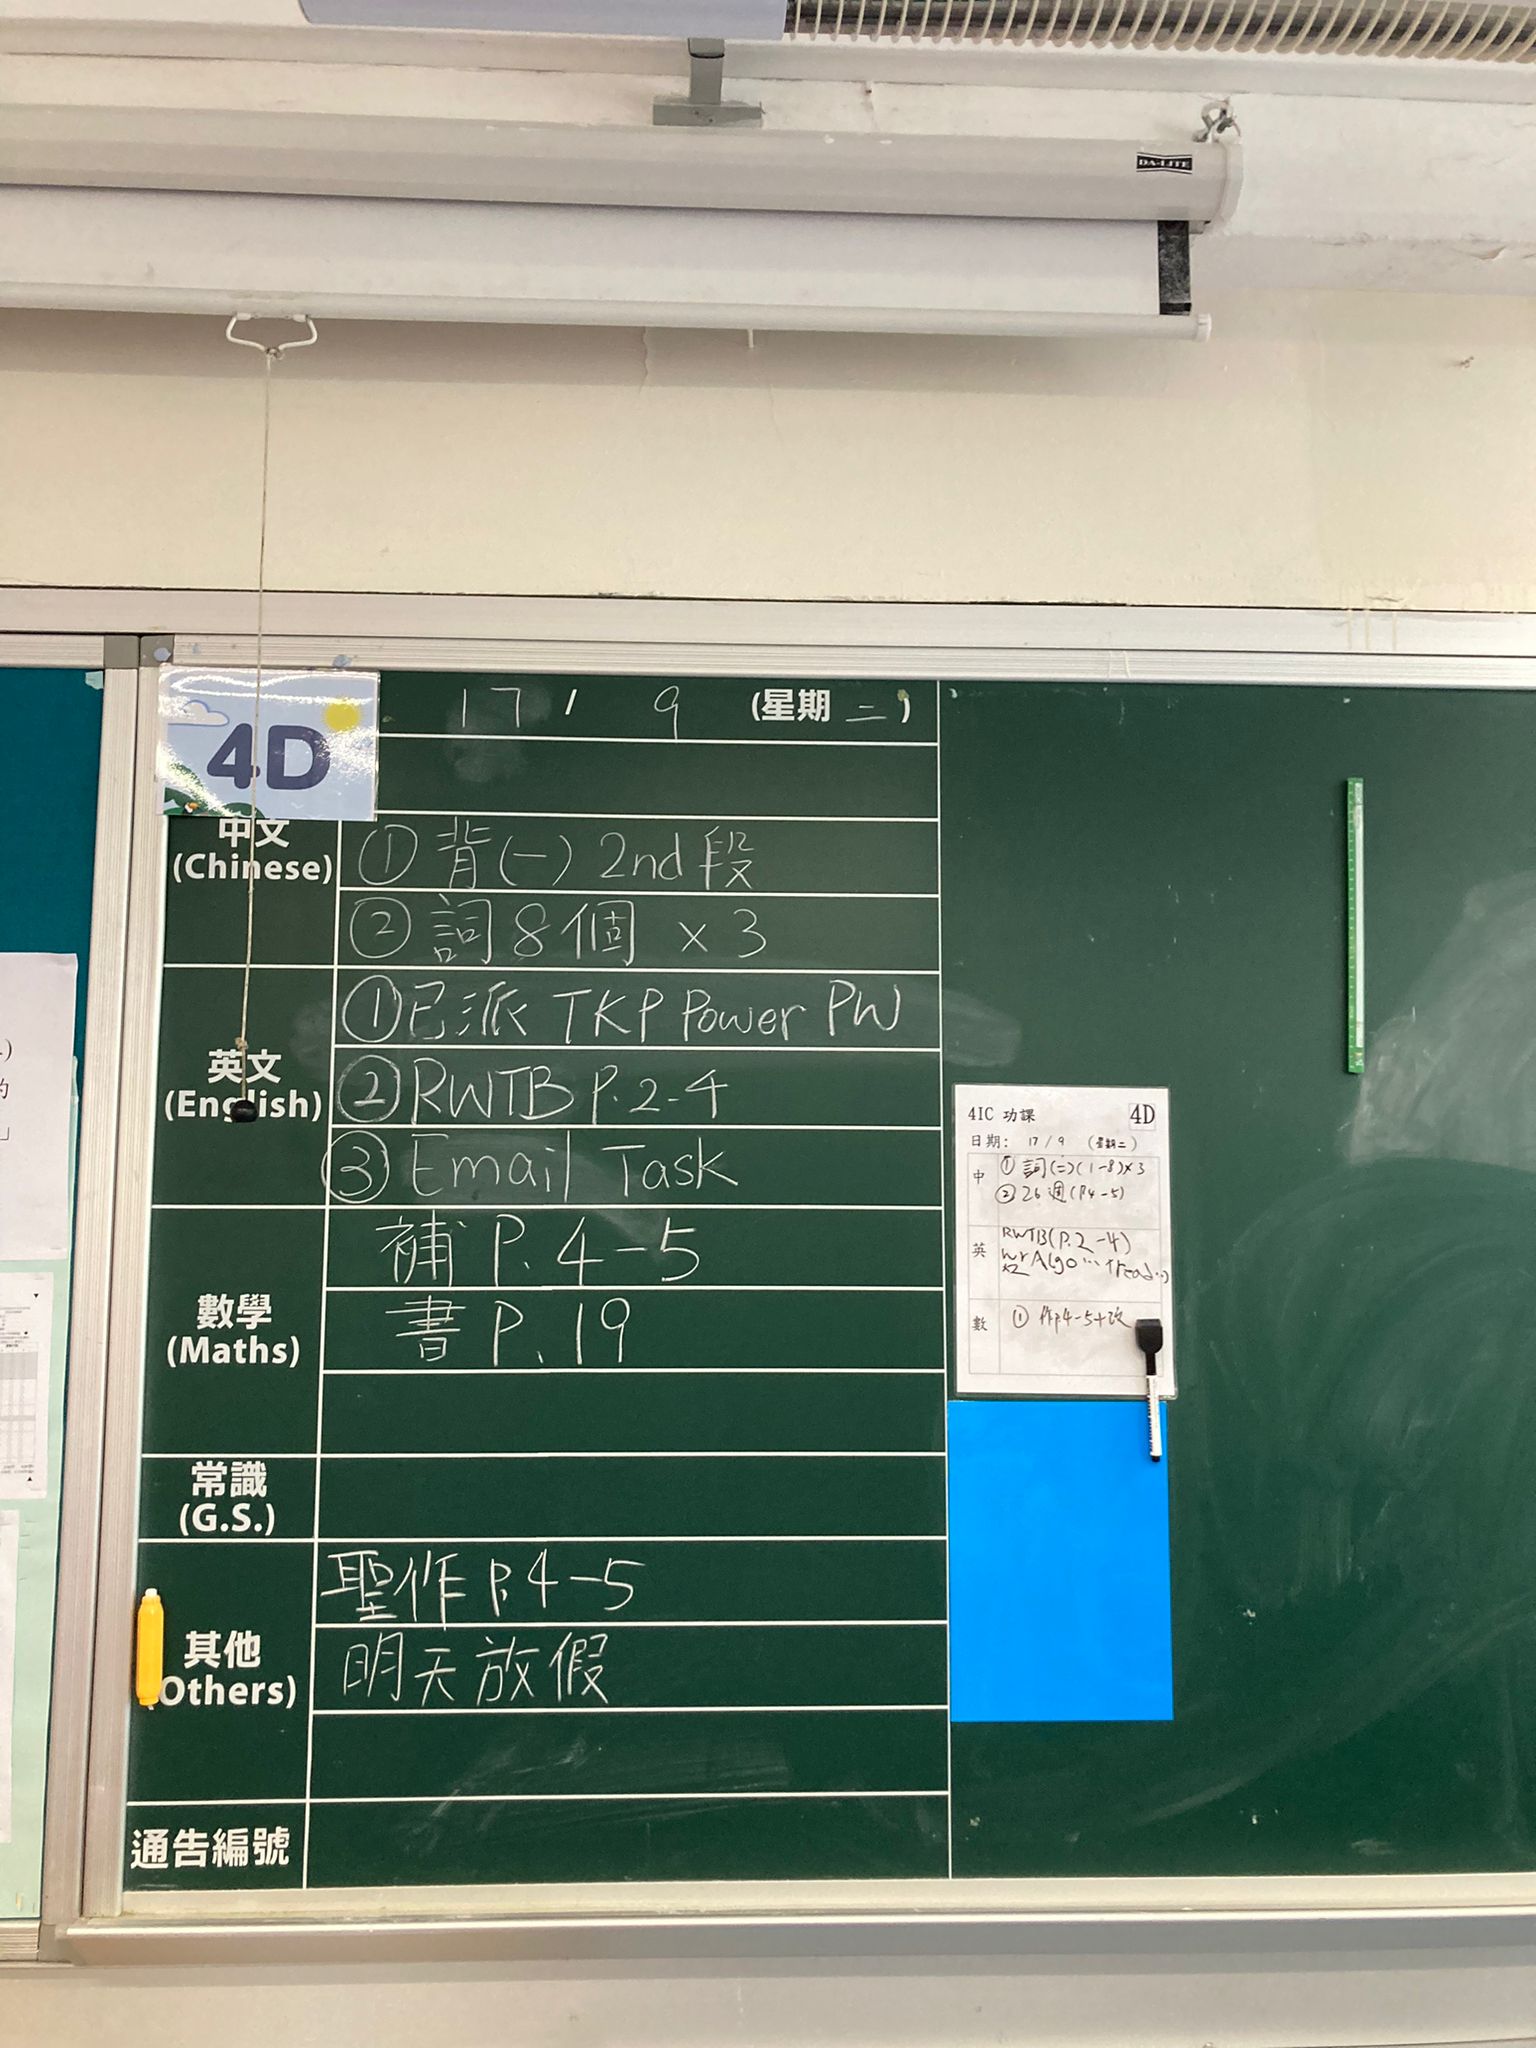 DA-LITE
4D
17 / 9 (星期 二)
中文
(Chinese)
① 背(一) 2nd 段
② 詞 8 個 × 3
英文
(English)
① 已派 TKP Power PW
② RWTB P.2-4
③ Email Task
數學
(Maths)
補 P. 4-5
書 P. 19
常識
(G.S.)
其他
(Others)
聖作 P.4-5
明天放假
通告編號
4IC 功課 4D
日期: 17 / 9 (星期二)
中
① 詞(二)(1-8)×3
② 26週(P.4-5)
英
RWTB(P.2-4)
數
① 作p4-5+改